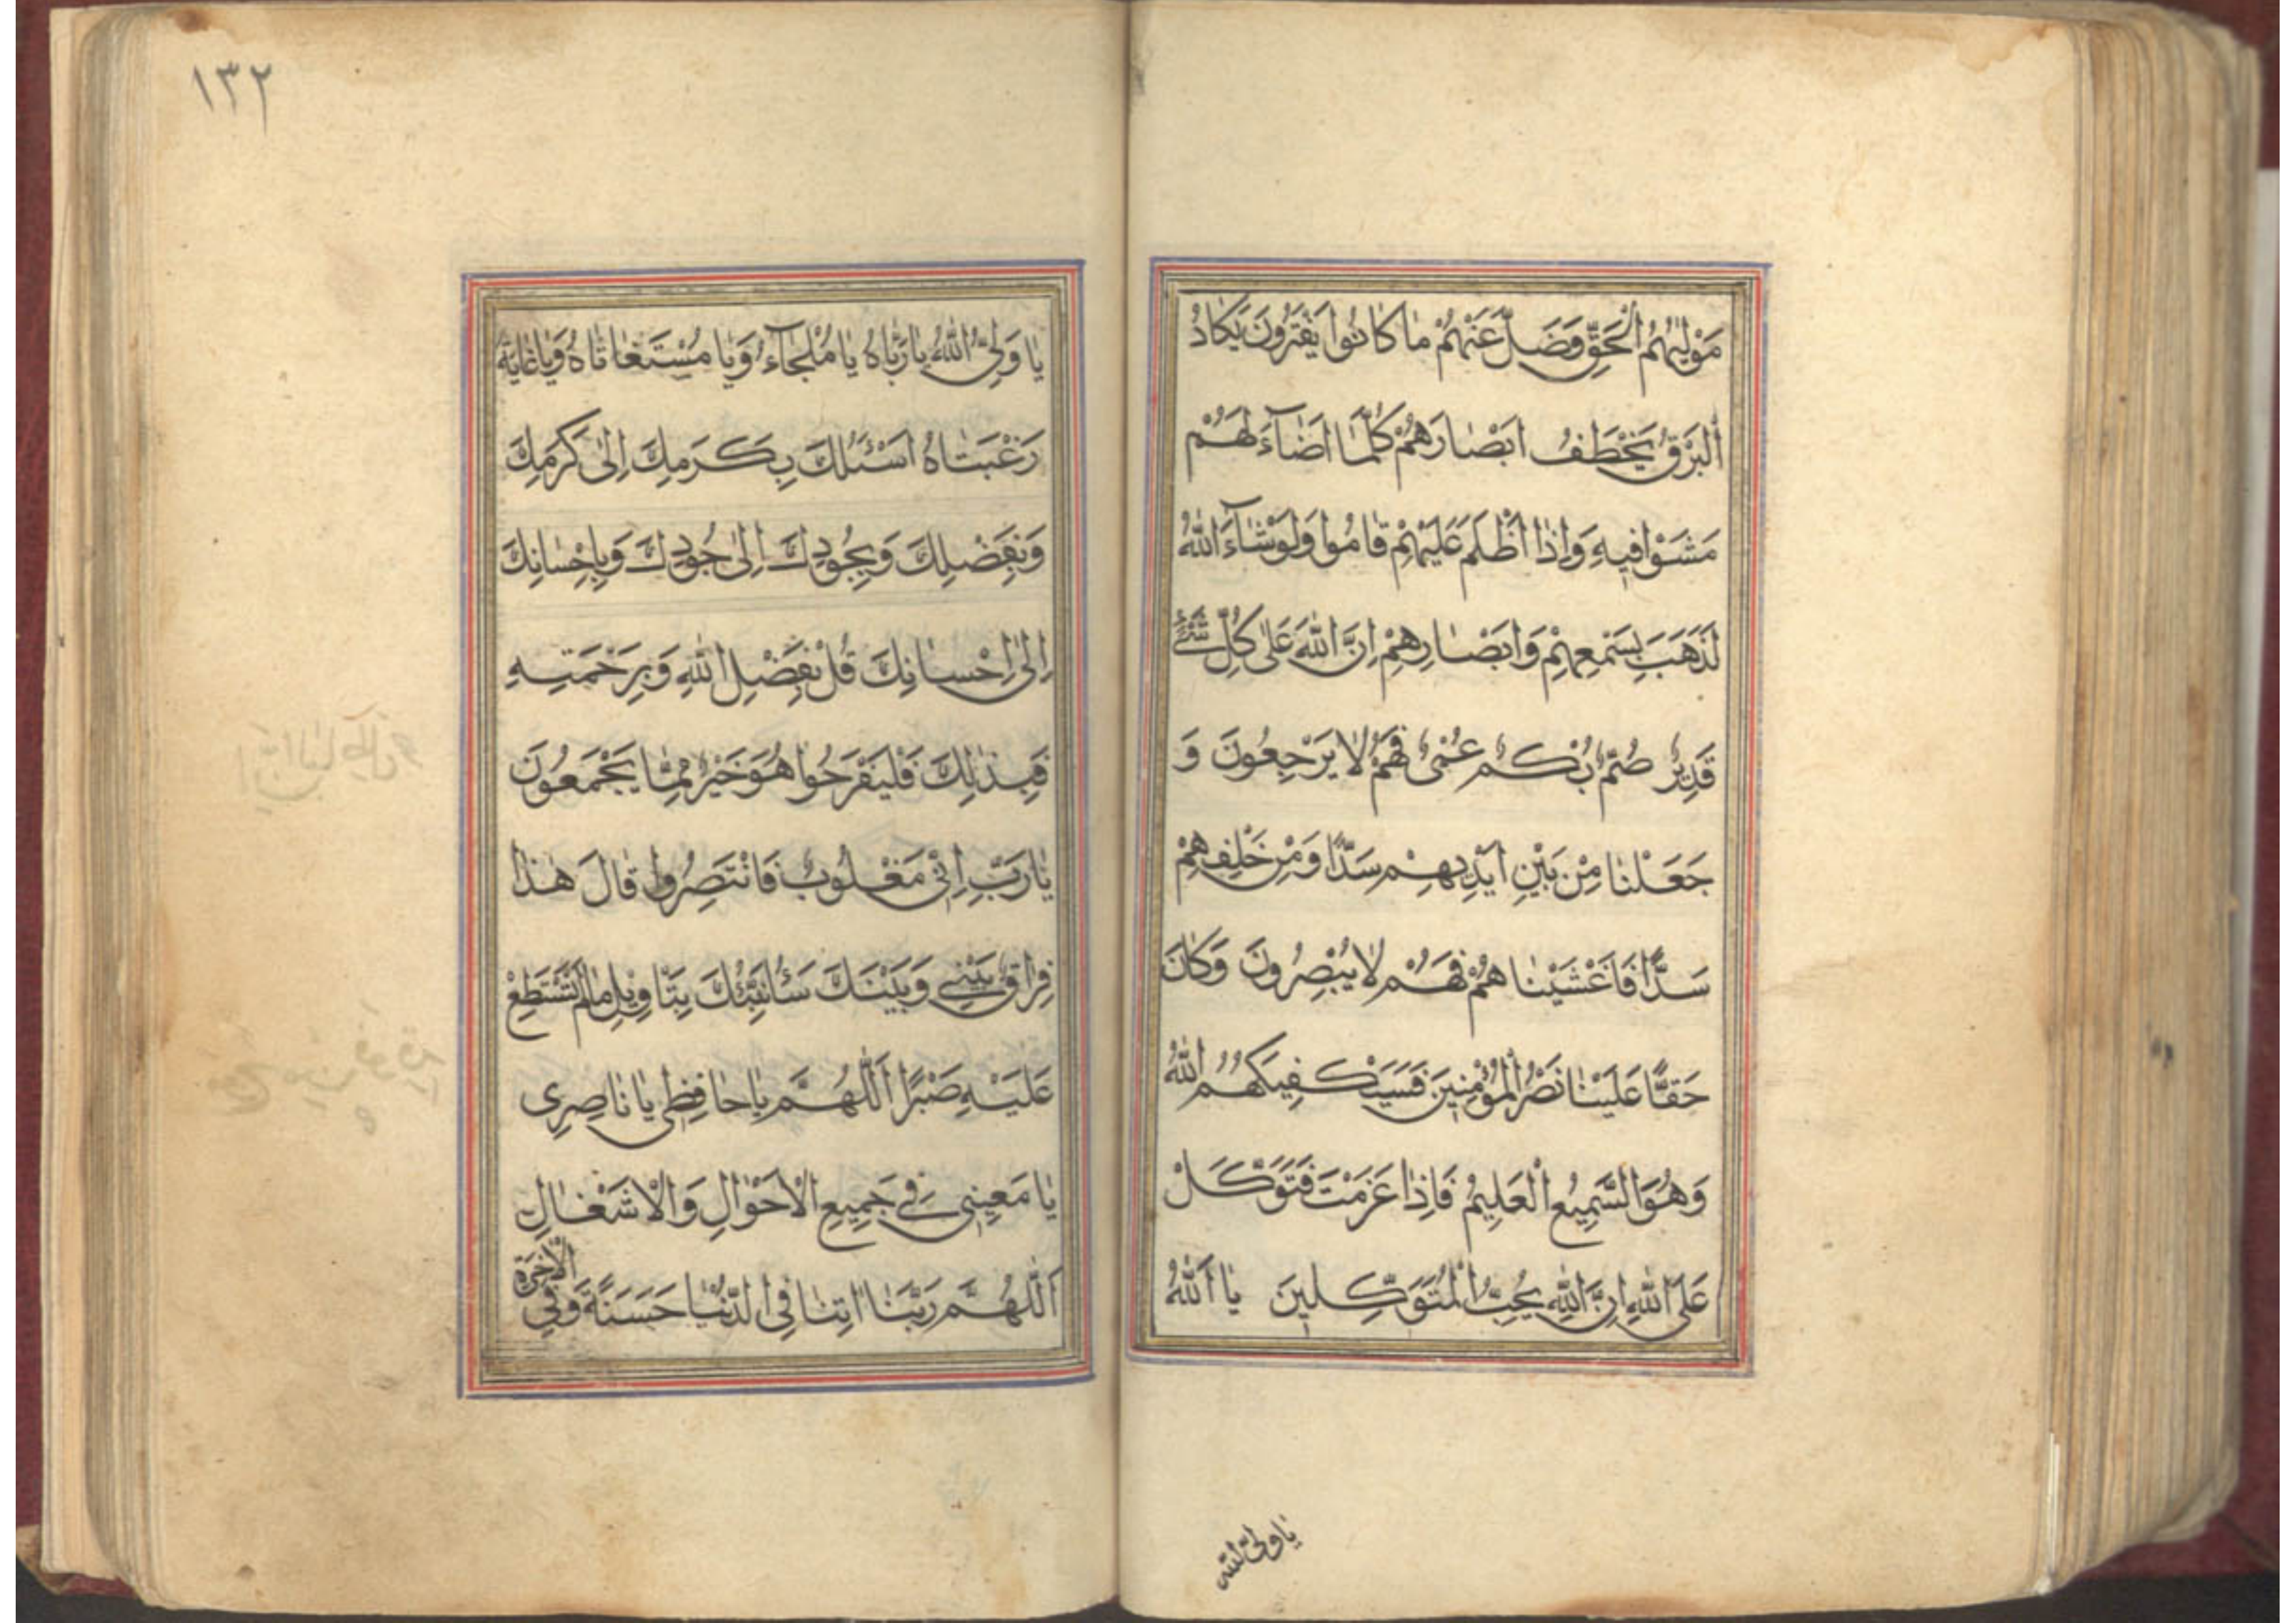 مَوْلٰيهُمُ الْحَقِّ وَضَلَّ عَنْهُمْ مٰا كٰانُوا يَفْتَرُونَ يَكٰادُ
اَلْبَرْقُ يَخْطَفُ اَبْصٰارَهُمْ كُلَّمٰا اَضٰآءَ لَهُمْ
مَشَوْا فيهِ وَاِذٰا اَظْلَمَ عَلَيْهِمْ قٰامُوا وَلَوْ شٰآءَ اللّٰهُ
لَذَهَبَ بِسَمْعِهِمْ وَاَبْصٰارِهِمْ اِنَّ اللّٰهَ عَلٰى كُلِّ شَيْءٍ
قَديرٌ صُمٌّ بُكْمٌ عُمْىٌ فَهُمْ لٰا يَرْجِعُونَ وَ
جَعَلْنٰا مِنْ بَيْنِ اَيْديهِمْ سَدًّا وَمِنْ خَلْفِهِمْ
سَدًّا فَاَغْشَيْنٰاهُمْ فَهُمْ لٰا يُبْصِرُونَ وَكٰانَ
حَقًّا عَلَيْنٰا نَصْرُ الْمُؤْمِنينَ فَسَيَكْفيكَهُمُ اللّٰهُ
وَهُوَ السَّميعُ الْعَليمُ فَاِذٰا عَزَمْتَ فَتَوَكَّلْ
عَلَى اللّٰهِ اِنَّ اللّٰهَ يُحِبُّ الْمُتَوَكِّلينَ يٰا اَللّٰهُ
يا ولىّ الله
١٣٢
يٰا وَلِىُّ اللّٰهُ يٰا رَبّٰاهُ يٰا مُلْجَآءُ وَيٰا مُسْتَغٰاثٰاهُ وَيٰا غٰايَةَ
رَغْبَتٰاهُ اَسْئَلُكَ بِكَرَمِكَ اِلٰى كَرَمِكَ
وَبِفَضْلِكَ وَبِجُودِكَ اِلٰى جُودِكَ وَبِاِحْسٰانِكَ
اِلٰى اِحْسٰانِكَ قُلْ بِفَضْلِ اللّٰهِ وَبِرَحْمَتِهِ
فَبِذٰلِكَ فَلْيَفْرَحُوا هُوَ خَيْرٌ مِمّٰا يَجْمَعُونَ
يٰا رَبِّ اِنّى مَغْلُوبٌ فَانْتَصِرُوا قٰالَ هٰذٰا
فِرٰاقُ بَيْنى وَبَيْنَكَ سَاُنَبِّئُكَ بِتَاْويلِ مٰا لَمْ تَسْتَطِعْ
عَلَيْهِ صَبْرًا اَللّٰهُمَّ يٰا حٰافِظى يٰا نٰاصِرى
يٰا مَعينى فى جَميعِ الْاَحْوٰالِ وَالْاَشْغٰالِ
اَللّٰهُمَّ رَبَّنٰا اٰتِنٰا فِى الدُّنْيٰا حَسَنَةً وَفِى الْاٰخِرَةِ